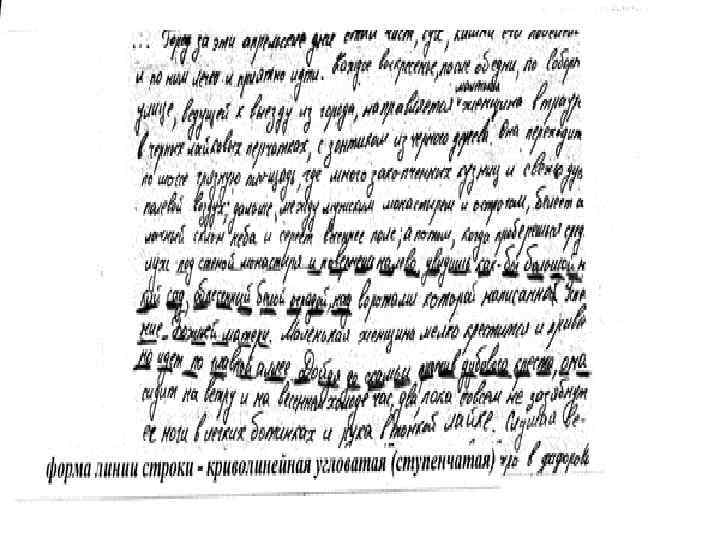 ... Город за эти апрельские дни стал чист, сух, камни его побелели
и по ним легко и приятно идти. Каждое воскресенье, после обедни, по Соборн
маленькая
улице, ведущей к выезду из города, направляется женщина в трауре
в черных лайковых перчатках, с зонтиком из черного дерева. Она переходит
по шоссе грязную площадь, где много закопченных кузниц и свежо дуе
полевой воздух; дальше, между мужским монастырем и острогом, белеет о
лачный склон неба и сереет весеннее поле, а потом, когда проберешься сред
луж под стеной монастыря и повернешь налево, увидишь как-бы большой н
кий сад, обнесенный белой оградой, над воротами которой написанной Успе
ние Божией матери. Маленькая женщина мелко крестится и привыч
но идет по главной аллее. Дойдя до скамьи против дубового креста, она
сидит на ветру и на весеннем холоде час, два, пока совсем не зазябнут
ее ноги в легких ботинках и рука в тонкой лайке. Слушая ве-
форма линии строки - криволинейная угловатая (ступенчатая) что в фарфоров